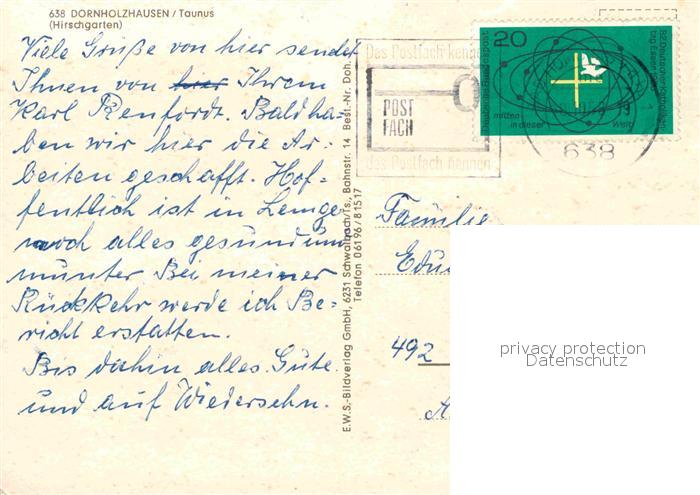 638 DORNHOLZHAUSEN / Taunus
(Hirschgarten)
Viele Grüße von hier sendet
Ihnen von hier Ihrem
Karl Renfordt. Bald ha-
ben wir hier die Ar-
beiten geschafft. Hof-
fentlich ist in Lemgo
noch alles gesund und
munter Bei meiner
Rückkehr werde ich Be-
richt erstatten.
Bis dahin alles Gute
und auf Wiedersehn.
E.W.S.-Bildverlag GmbH, 6231 Schwalbach/Ts., Bahnstr. 14 Best.-Nr. Doh.
Telefon 06196/81517
Das Postfach kennen
POST
FACH
das Postfach nennen
20
Deutsche Bundespost
82. Deutscher Katholiken
tag Essen 1968
mitten
in dieser
Welt
638
Familie
492
privacy protection
Datenschutz